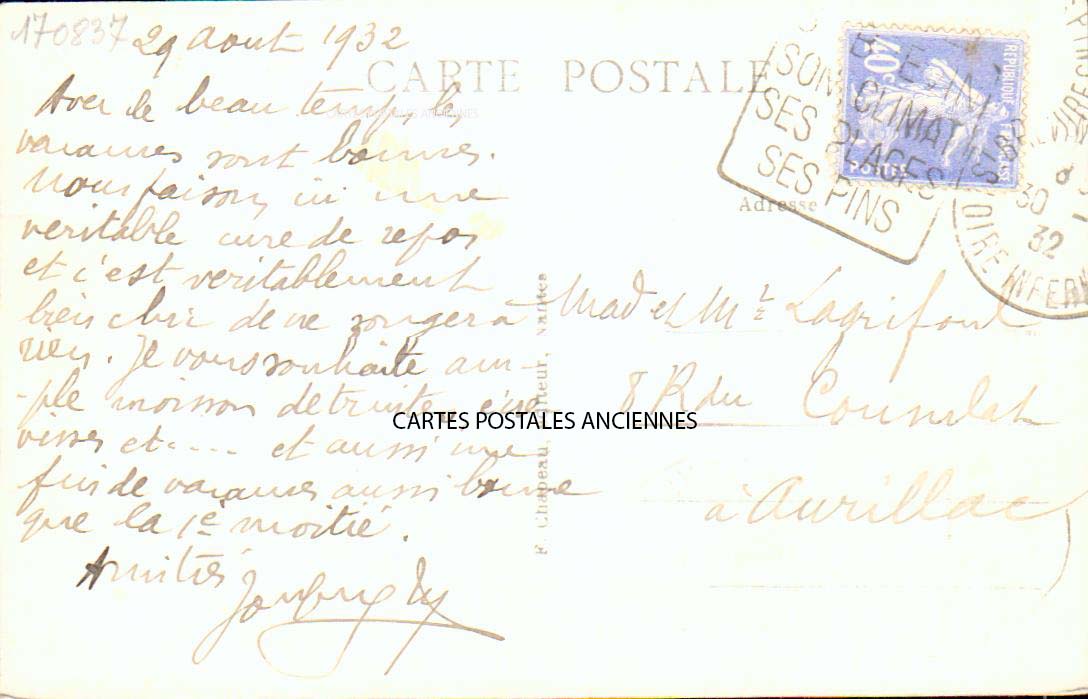 170837
29 Aout 1932
CARTE POSTALE
Avec le beau temps les
vacances sont bonnes.
Nous faisons ici une
veritable cure de repos
et c'est veritablement
bien chic de ne songer à
rien. Je vous souhaite am-
-ple moisson de truites, écre
visses et.... et aussi une
fin de vacances aussi bonne
que la 1e moitié.
Amitiés
CARTES POSTALES ANCIENNES
CARTES POSTALES ANCIENNES
F. Chapeau, Nantes
SON CLIMAT
SES PLAGES
SES PINS
40c
REPUBLIQUE FRANÇAISE
POSTES
30
32
LOIRE INFERV
Adresse
Mad et Mr Lagrifoul
8 R du Consulat
à Aurillac